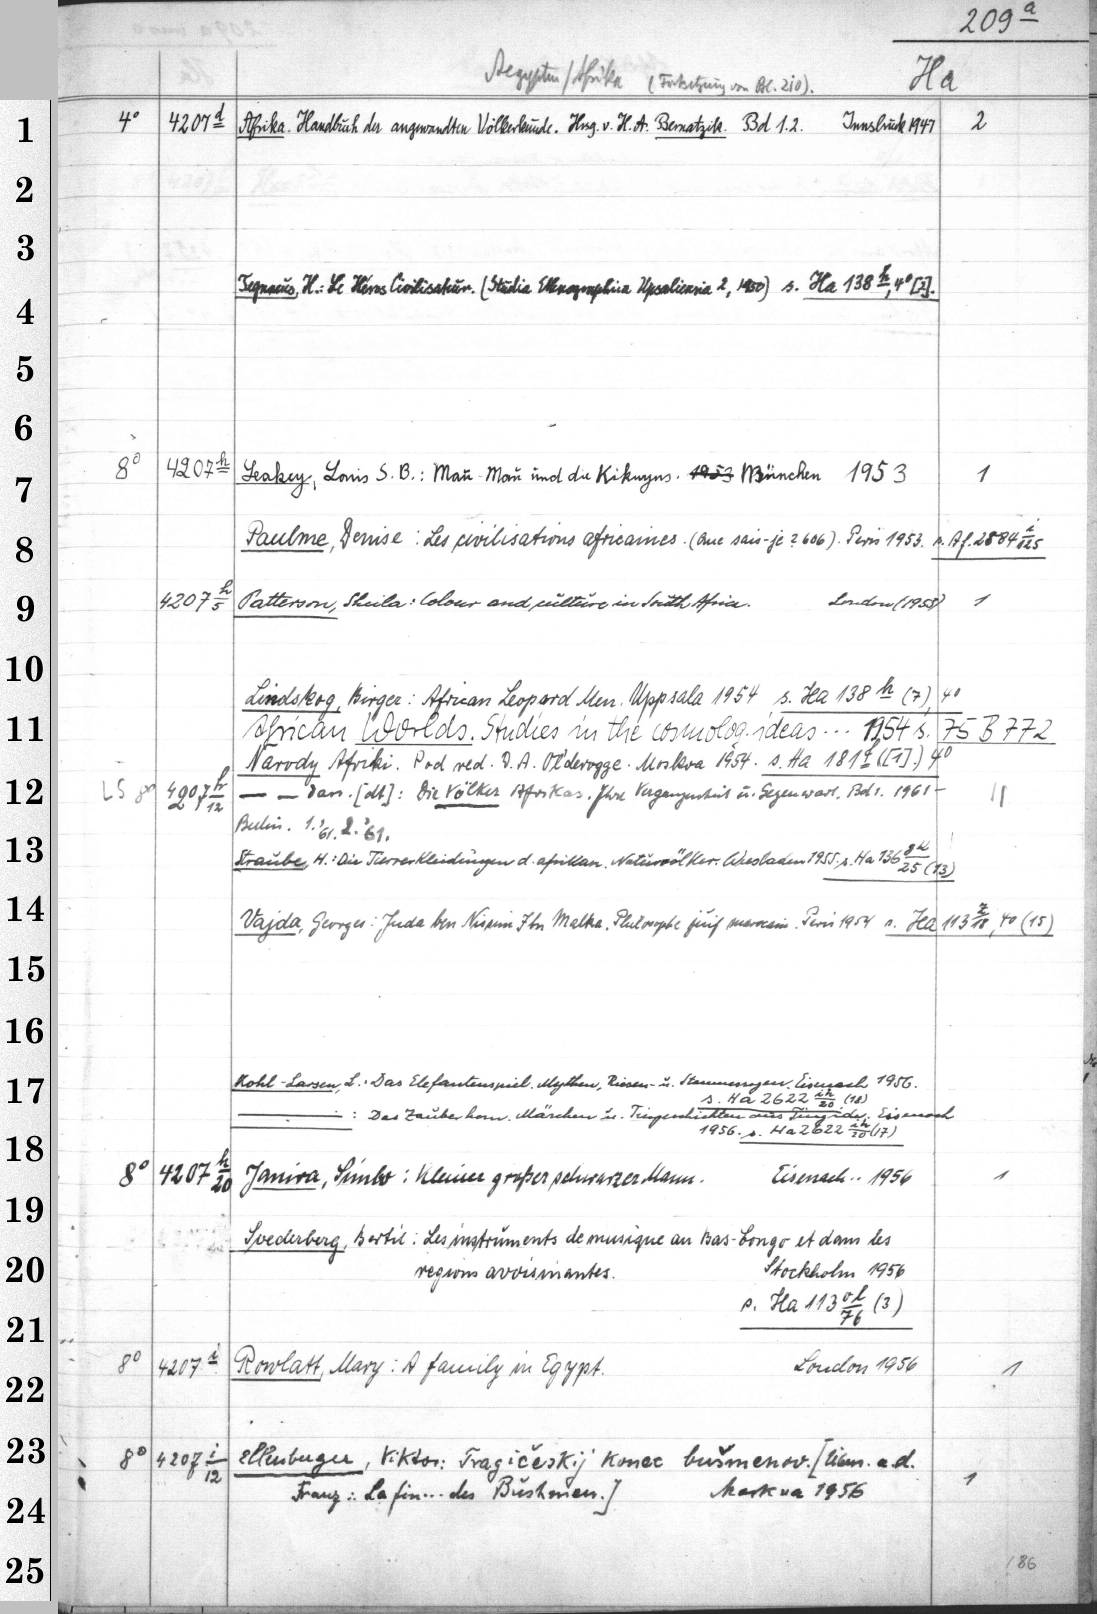 209 a
Aegypten/Afrika (Fortsetzung von Bl. 210). Ha
1 4° 4207 d Afrika. Handbuch der angewandten Völkerkunde. Hrsg. v. H. A. Bernatzik. Bd 1.2. Innsbruck 1947 2
2
3
Tegnaeus, H.: Le Héros Civilisateur. (Studia Ethnographica Upsaliensia 2, 1950) s. Ha 138 h, 4° [2].
4
5
6
7 8° 4207 h Leakey, Louis S. B.: Mau-Mau und die Kikuyus. 1953 München 1953 1
8 Paulme, Denise: Les civilisations africaines. (Que sais-je? 606). Paris 1953. s. Af. 2884 i/625
9 4207 h/5 Patterson, Sheila: Colour and culture in South Africa. London (1953) 1
10
Lindskog, Birger: African Leopard Men. Uppsala 1954 s. Ha 138 h (7), 4°
11 African Worlds. Studies in the cosmolog. ideas... 1954 s. 75 B 772
Narody Afriki. Pod red. D. A. Ol'derogge. Moskva 1954. s. Ha 181 f ([1].) 4°
12 LS 4207 h/12 — — dass. [dt]: Die Völker Afrikas. Ihre Vergangenheit u. Gegenwart. Bd 1. 1961- II
Berlin. 1.'61. 2.'61.
13 Straube, H.: Die Tierverkleidungen d. afrikan. Naturvölker. Wiesbaden 1955. s. Ha 136 gk/25 (13)
14 Vajda, Georges: Juda ben Nissim Ibn Malka. Philosophe juif marocain. Paris 1954 s. Ha 113 z/18, 4° (15)
15
16
17 Kohl-Larsen, L.: Das Elefantenspiel. Mythen, Riesen- u. Stammessagen. Eisenach 1956.
s. Ha 2622 ih/20 (18)
———— : Das Zauberhorn. Märchen u. Tiergeschichten aus Eisenach
1956. s. Ha 2622 ih/20 (17)
18 8° 4207 h/20 Janira, Simbo: Kleiner großer schwarzer Mann. Eisenach.. 1956 1
19
Svederberg, Bertil: Les instruments de musique au Bas-Congo et dans les
20 regions avoisinantes. Stockholm 1956
s. Ha 113 ol/76 (3)
21
8° 4207 i Rowlatt, Mary: A family in Egypt. London 1956 1
22
23 8° 4207 i/12 Ellenberger, Viktor: Tragičeskij konec bušmenov. [Übers. a. d.
Franz.: La fin... des Bushmen.] Moskva 1956 1
24
25 186